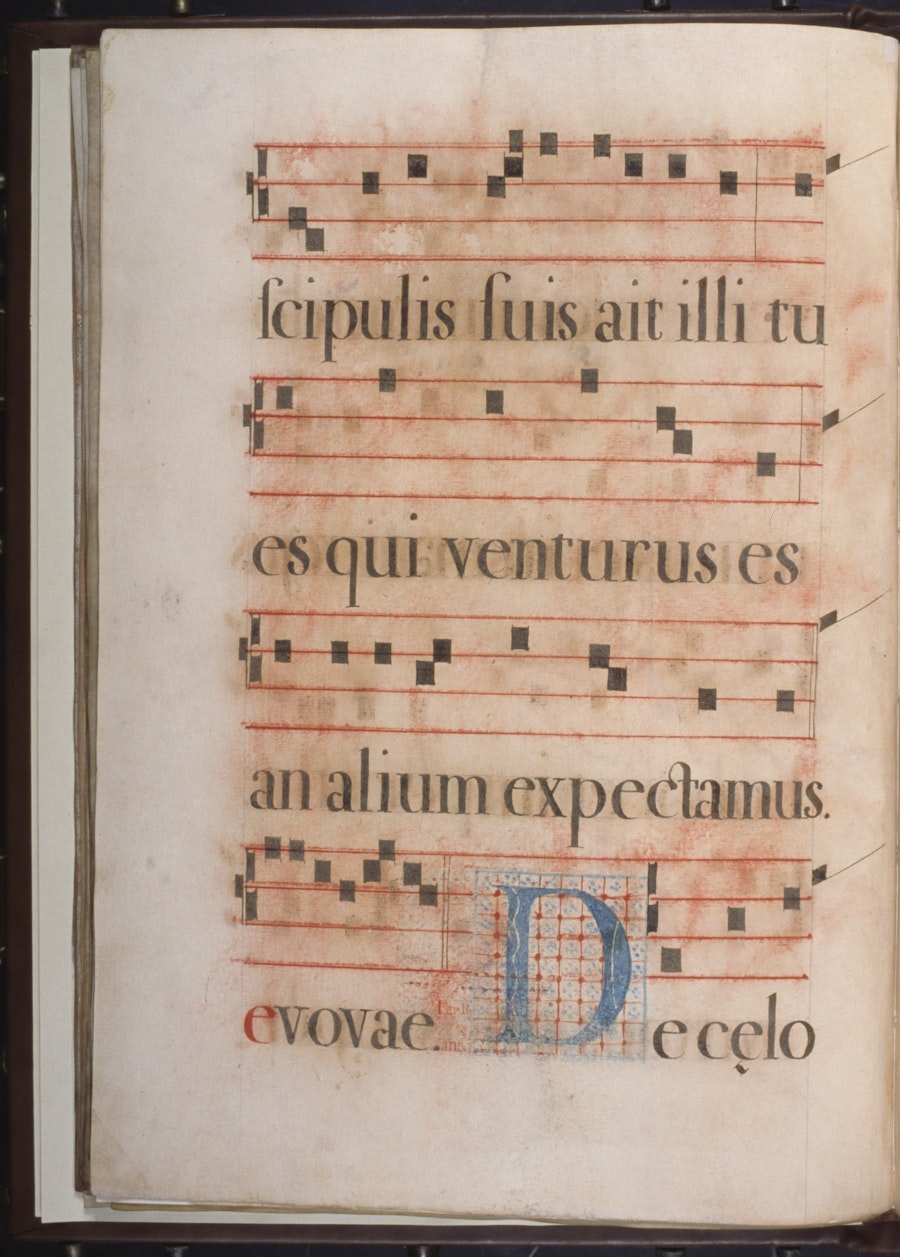 ſcipulis ſuis ait illi tu
es qui venturus es
an alium expectamus.
evovae. De cęlo